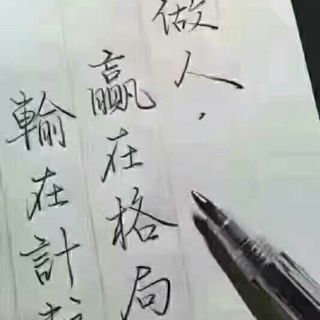 做人，
赢在格局
輸在計